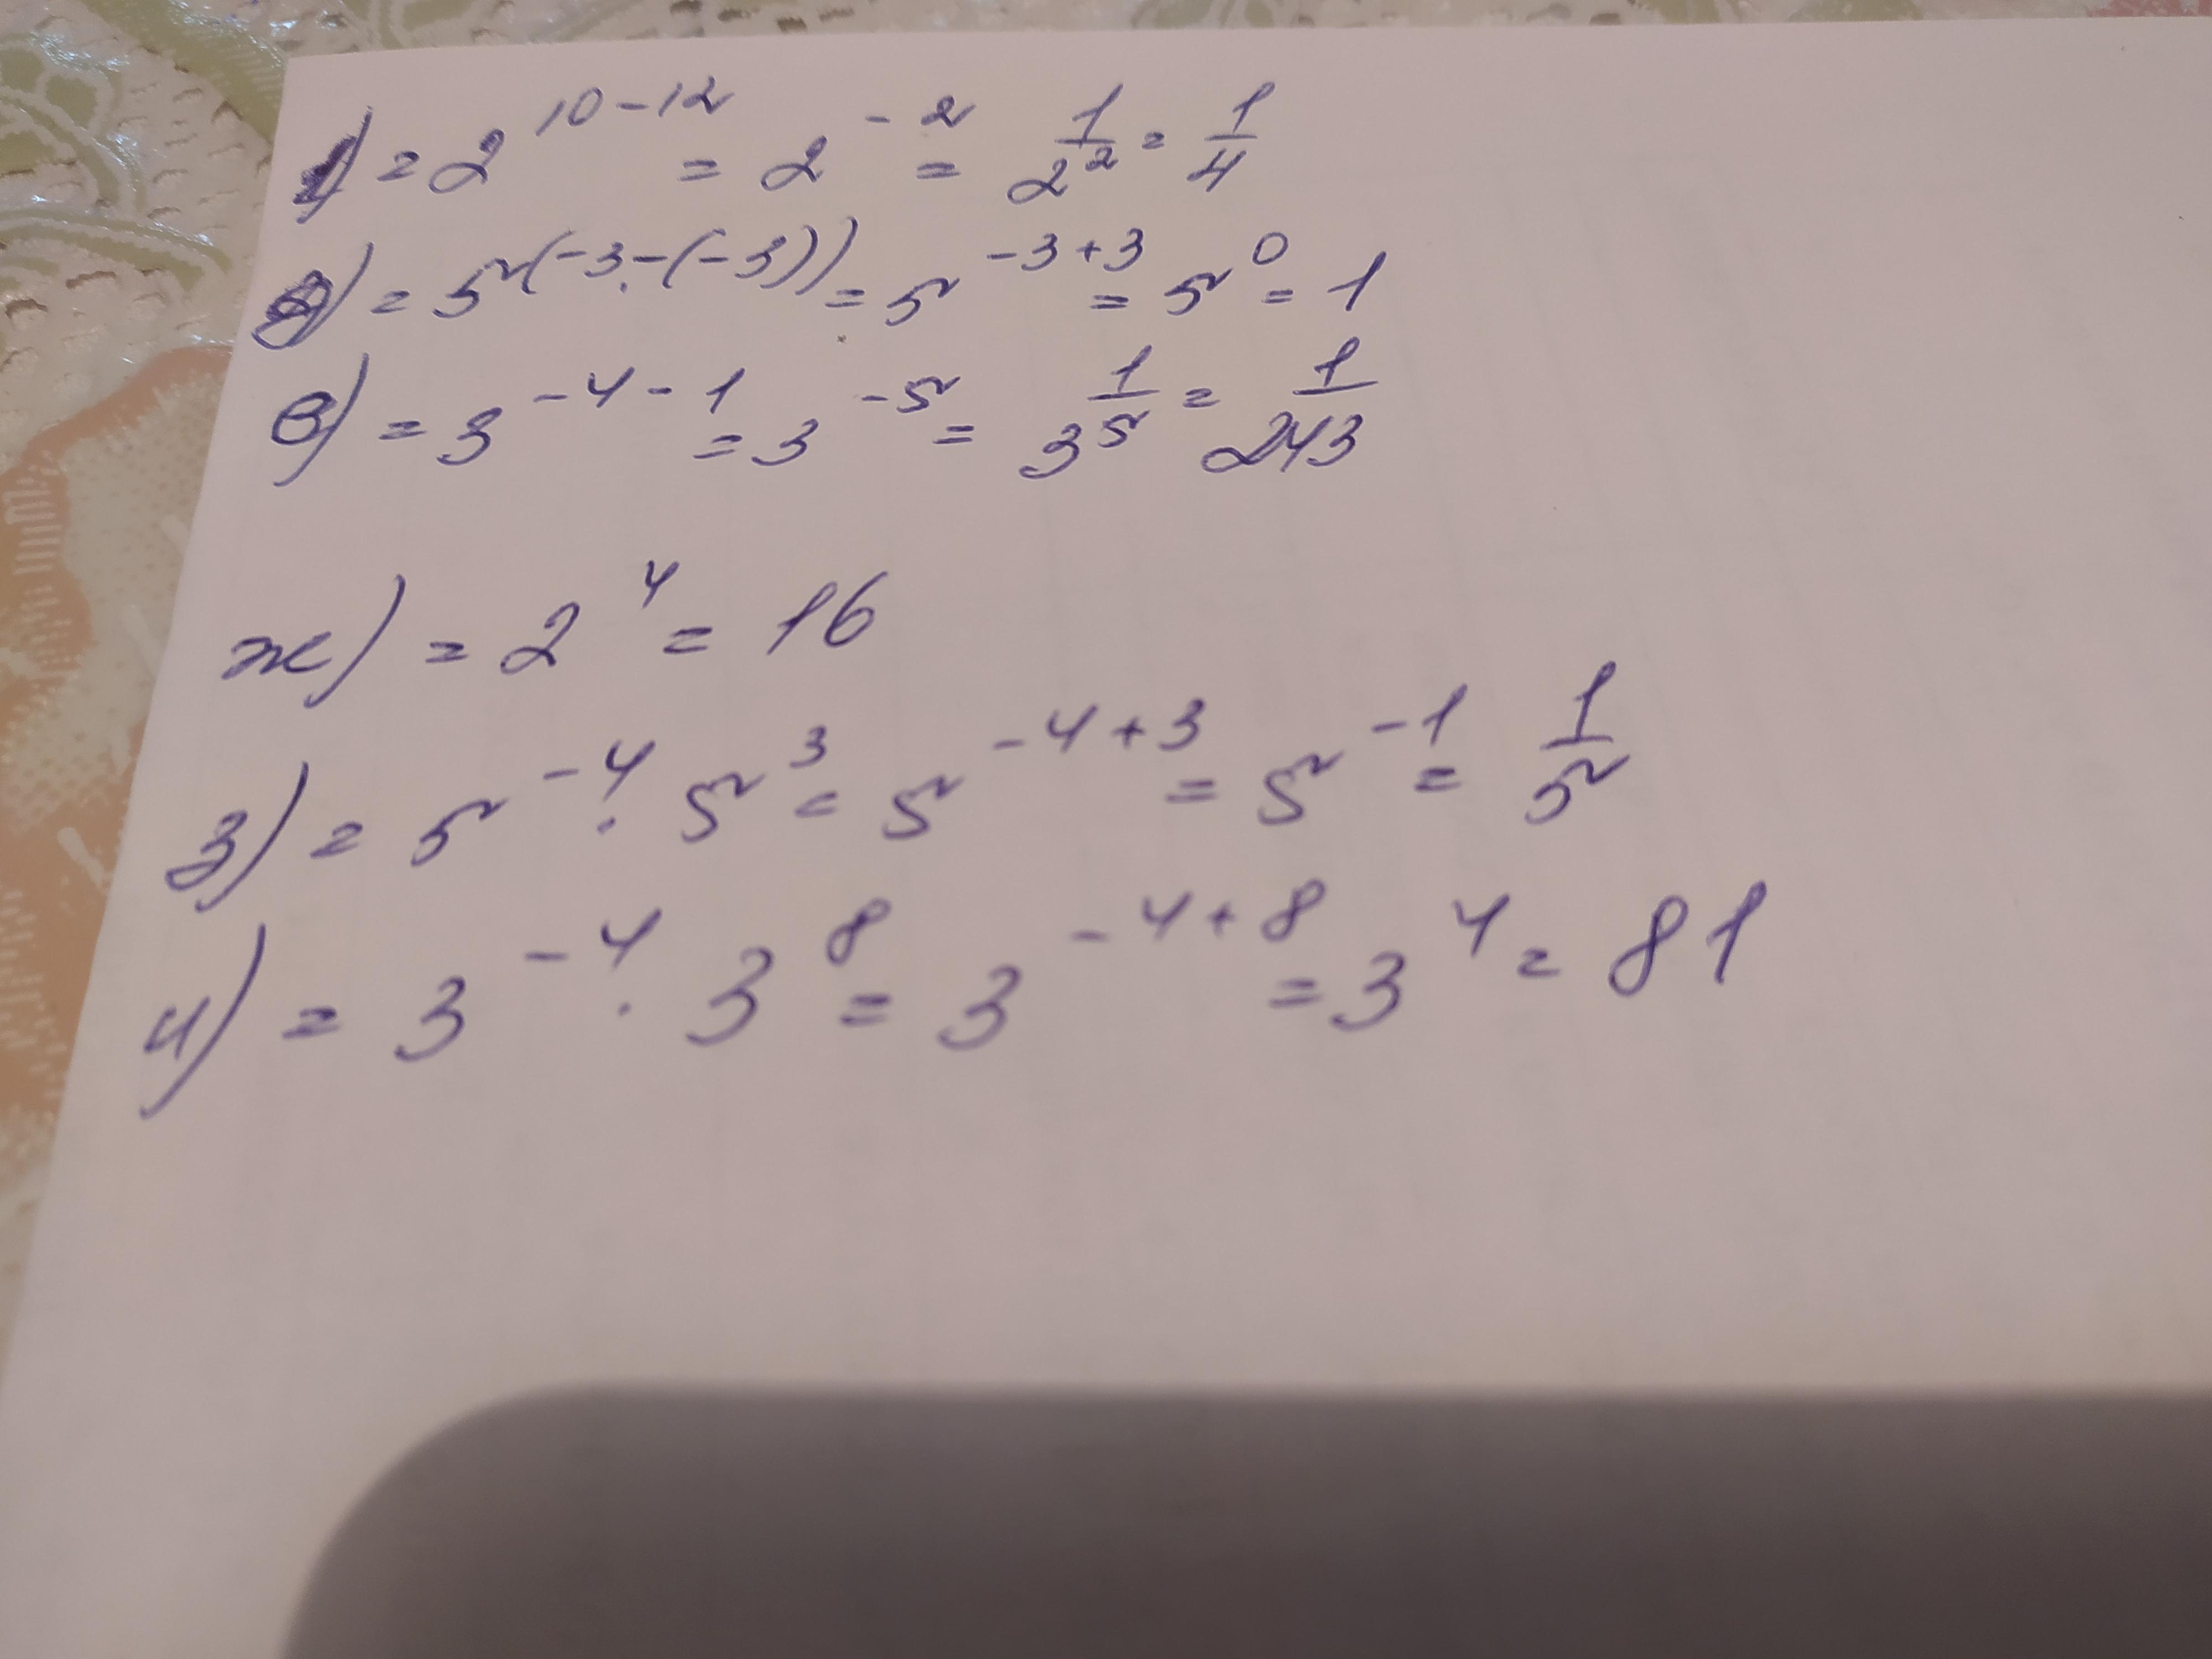 = 2^{10-12} = 2^{-2} = \frac{1}{2^2} = \frac{1}{4}
= 5^{(-3-(-3))} = 5^{-3+3} = 5^0 = 1
е) = 3^{-4-1} = 3^{-5} = \frac{1}{3^5} = \frac{1}{243}
ж) = 2^4 = 16
з) = 5^{-4} · 5^3 = 5^{-4+3} = 5^{-1} = \frac{1}{5}
и) = 3^{-4} · 3^8 = 3^{-4+8} = 3^4 = 81